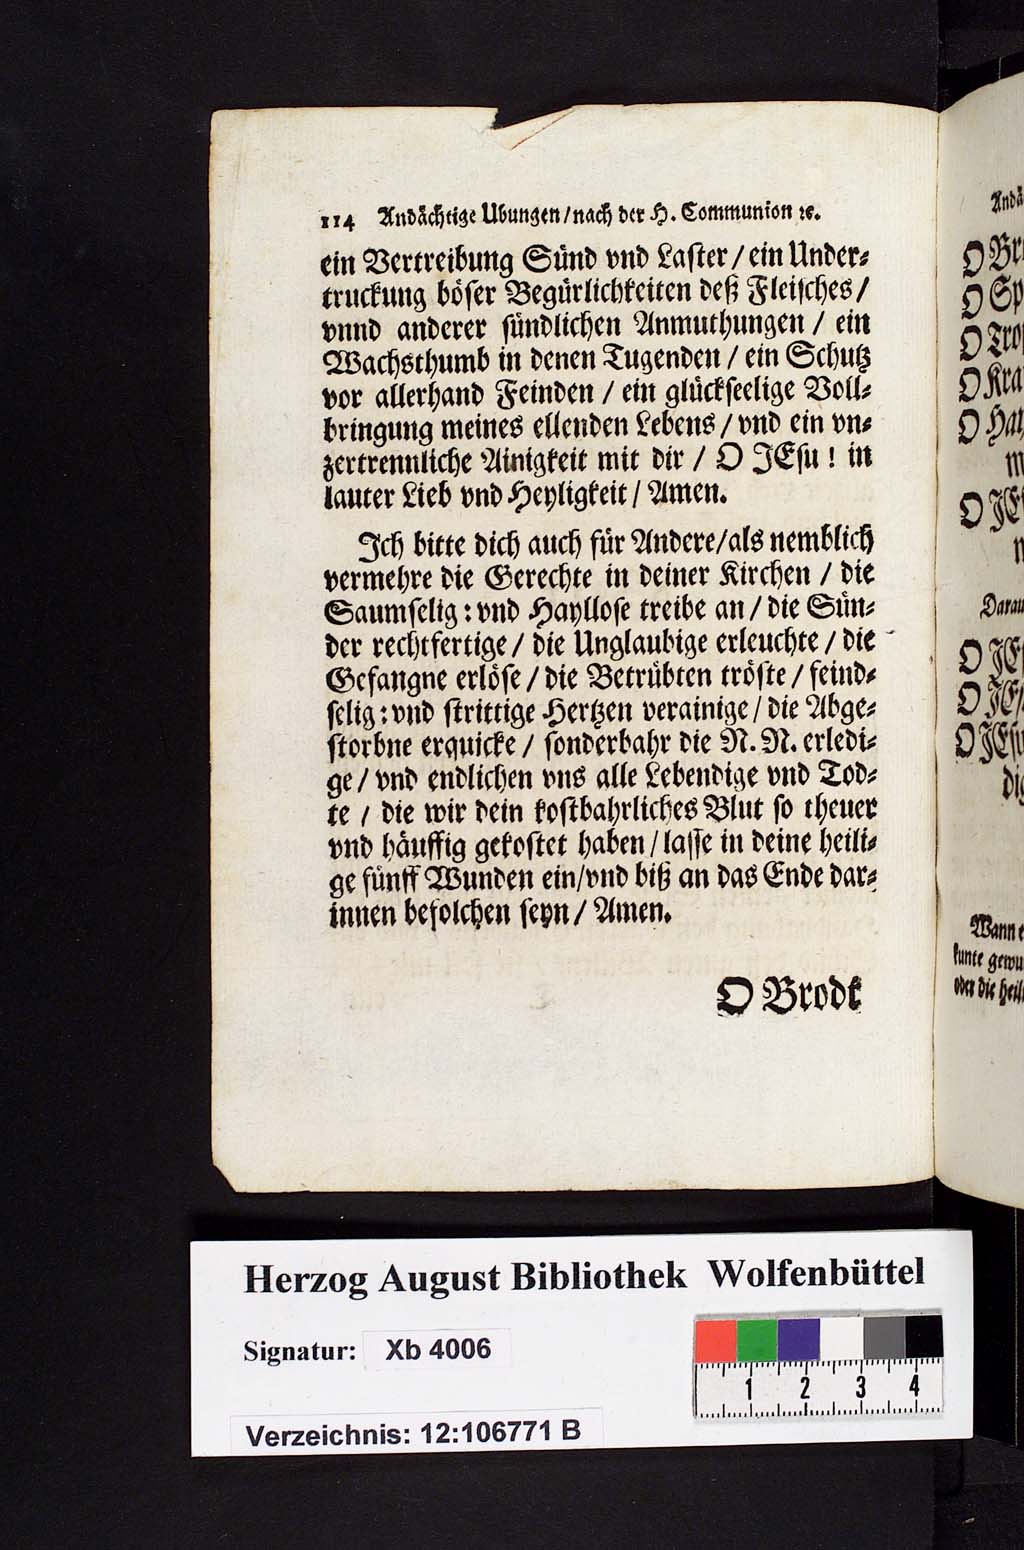 114 Andächtige Ubungen/nach der H. Communion ꝛc.
ein Vertreibung Sünd vnd Laster / ein Under⸗
truckung böser Begürlichkeiten deß Fleisches /
vnnd anderer sündlichen Anmuthungen / ein
Wachsthumb in denen Tugenden / ein Schutz
vor allerhand Feinden / ein glückseelige Voll⸗
bringung meines ellenden Lebens / vnd ein vn⸗
zertrennliche Ainigkeit mit dir / O JEsu ! in
lauter Lieb vnd Heyligkeit / Amen.
Ich bitte dich auch für Andere/als nemblich
vermehre die Gerechte in deiner Kirchen / die
Saumselig: vnd Hayllose treibe an / die Sün⸗
der rechtfertige / die Unglaubige erleuchte / die
Gefangne erlöse / die Betrübten tröste / feind⸗
selig: vnd strittige Hertzen verainige / die Abge⸗
storbne erquicke / sonderbahr die N. N. erledi⸗
ge / vnd endlichen vns alle Lebendige vnd Tod⸗
te / die wir dein kostbahrliches Blut so theuer
vnd häuffig gekostet haben / lasse in deine heili⸗
ge fünff Wunden ein/vnd biß an das Ende dar⸗
innen befolchen seyn / Amen.
O Brodt
O
O
O
O
O
O
O
O
O
Wann
kunte
oder die
Herzog August Bibliothek Wolfenbüttel
Signatur: Xb 4006
Verzeichnis: 12:106771 B
1 2 3 4